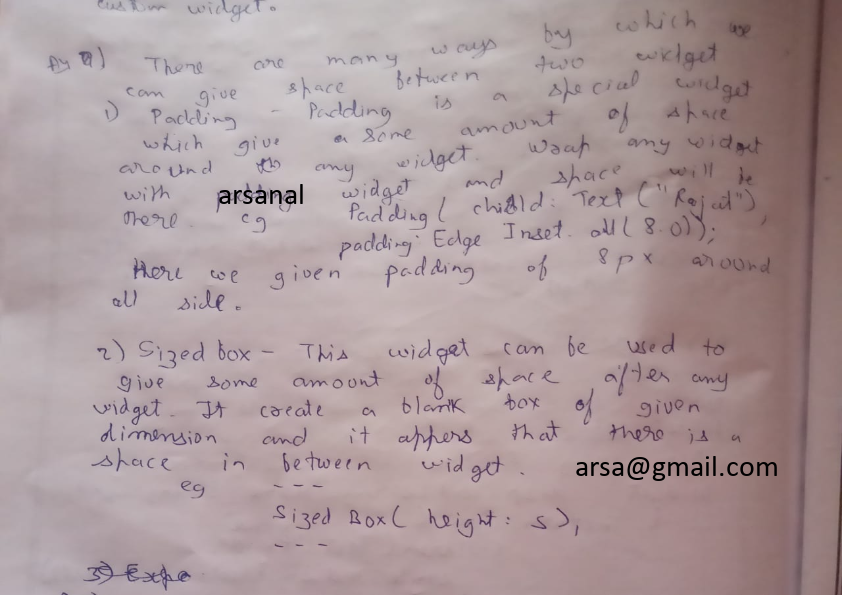 custom widget.
There are many ways by which we
can give space between two widget
1) Padding - Padding is a special widget
which give a some amount of space
around any widget. Wrap any widget
with arsanal widget and space will be
there. eg Padding( child: Text ("Rajat"),
padding: Edge Inset. all( 8.0));
Here we given padding of 8px around
all side.
2) Sized box - This widget can be used to
give some amount of space after any
widget. It create a blank box of given
dimension and it appers that there is a
space in between widget. arsa@gmail.com
eg - - -
Sized Box( height: 5),
- - -
3) Expa